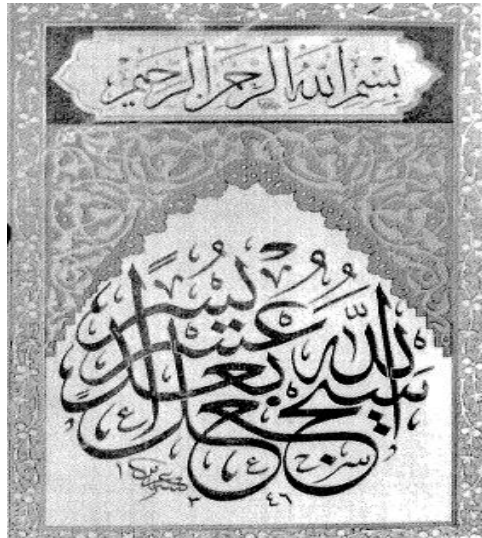 بِسْمِ اللهِ الرَّحْمَنِ الرَّحِيمِ
سَيَجْعَلُ اللّٰهُ بَعْدَ عُسْرٍ يُسْرًا